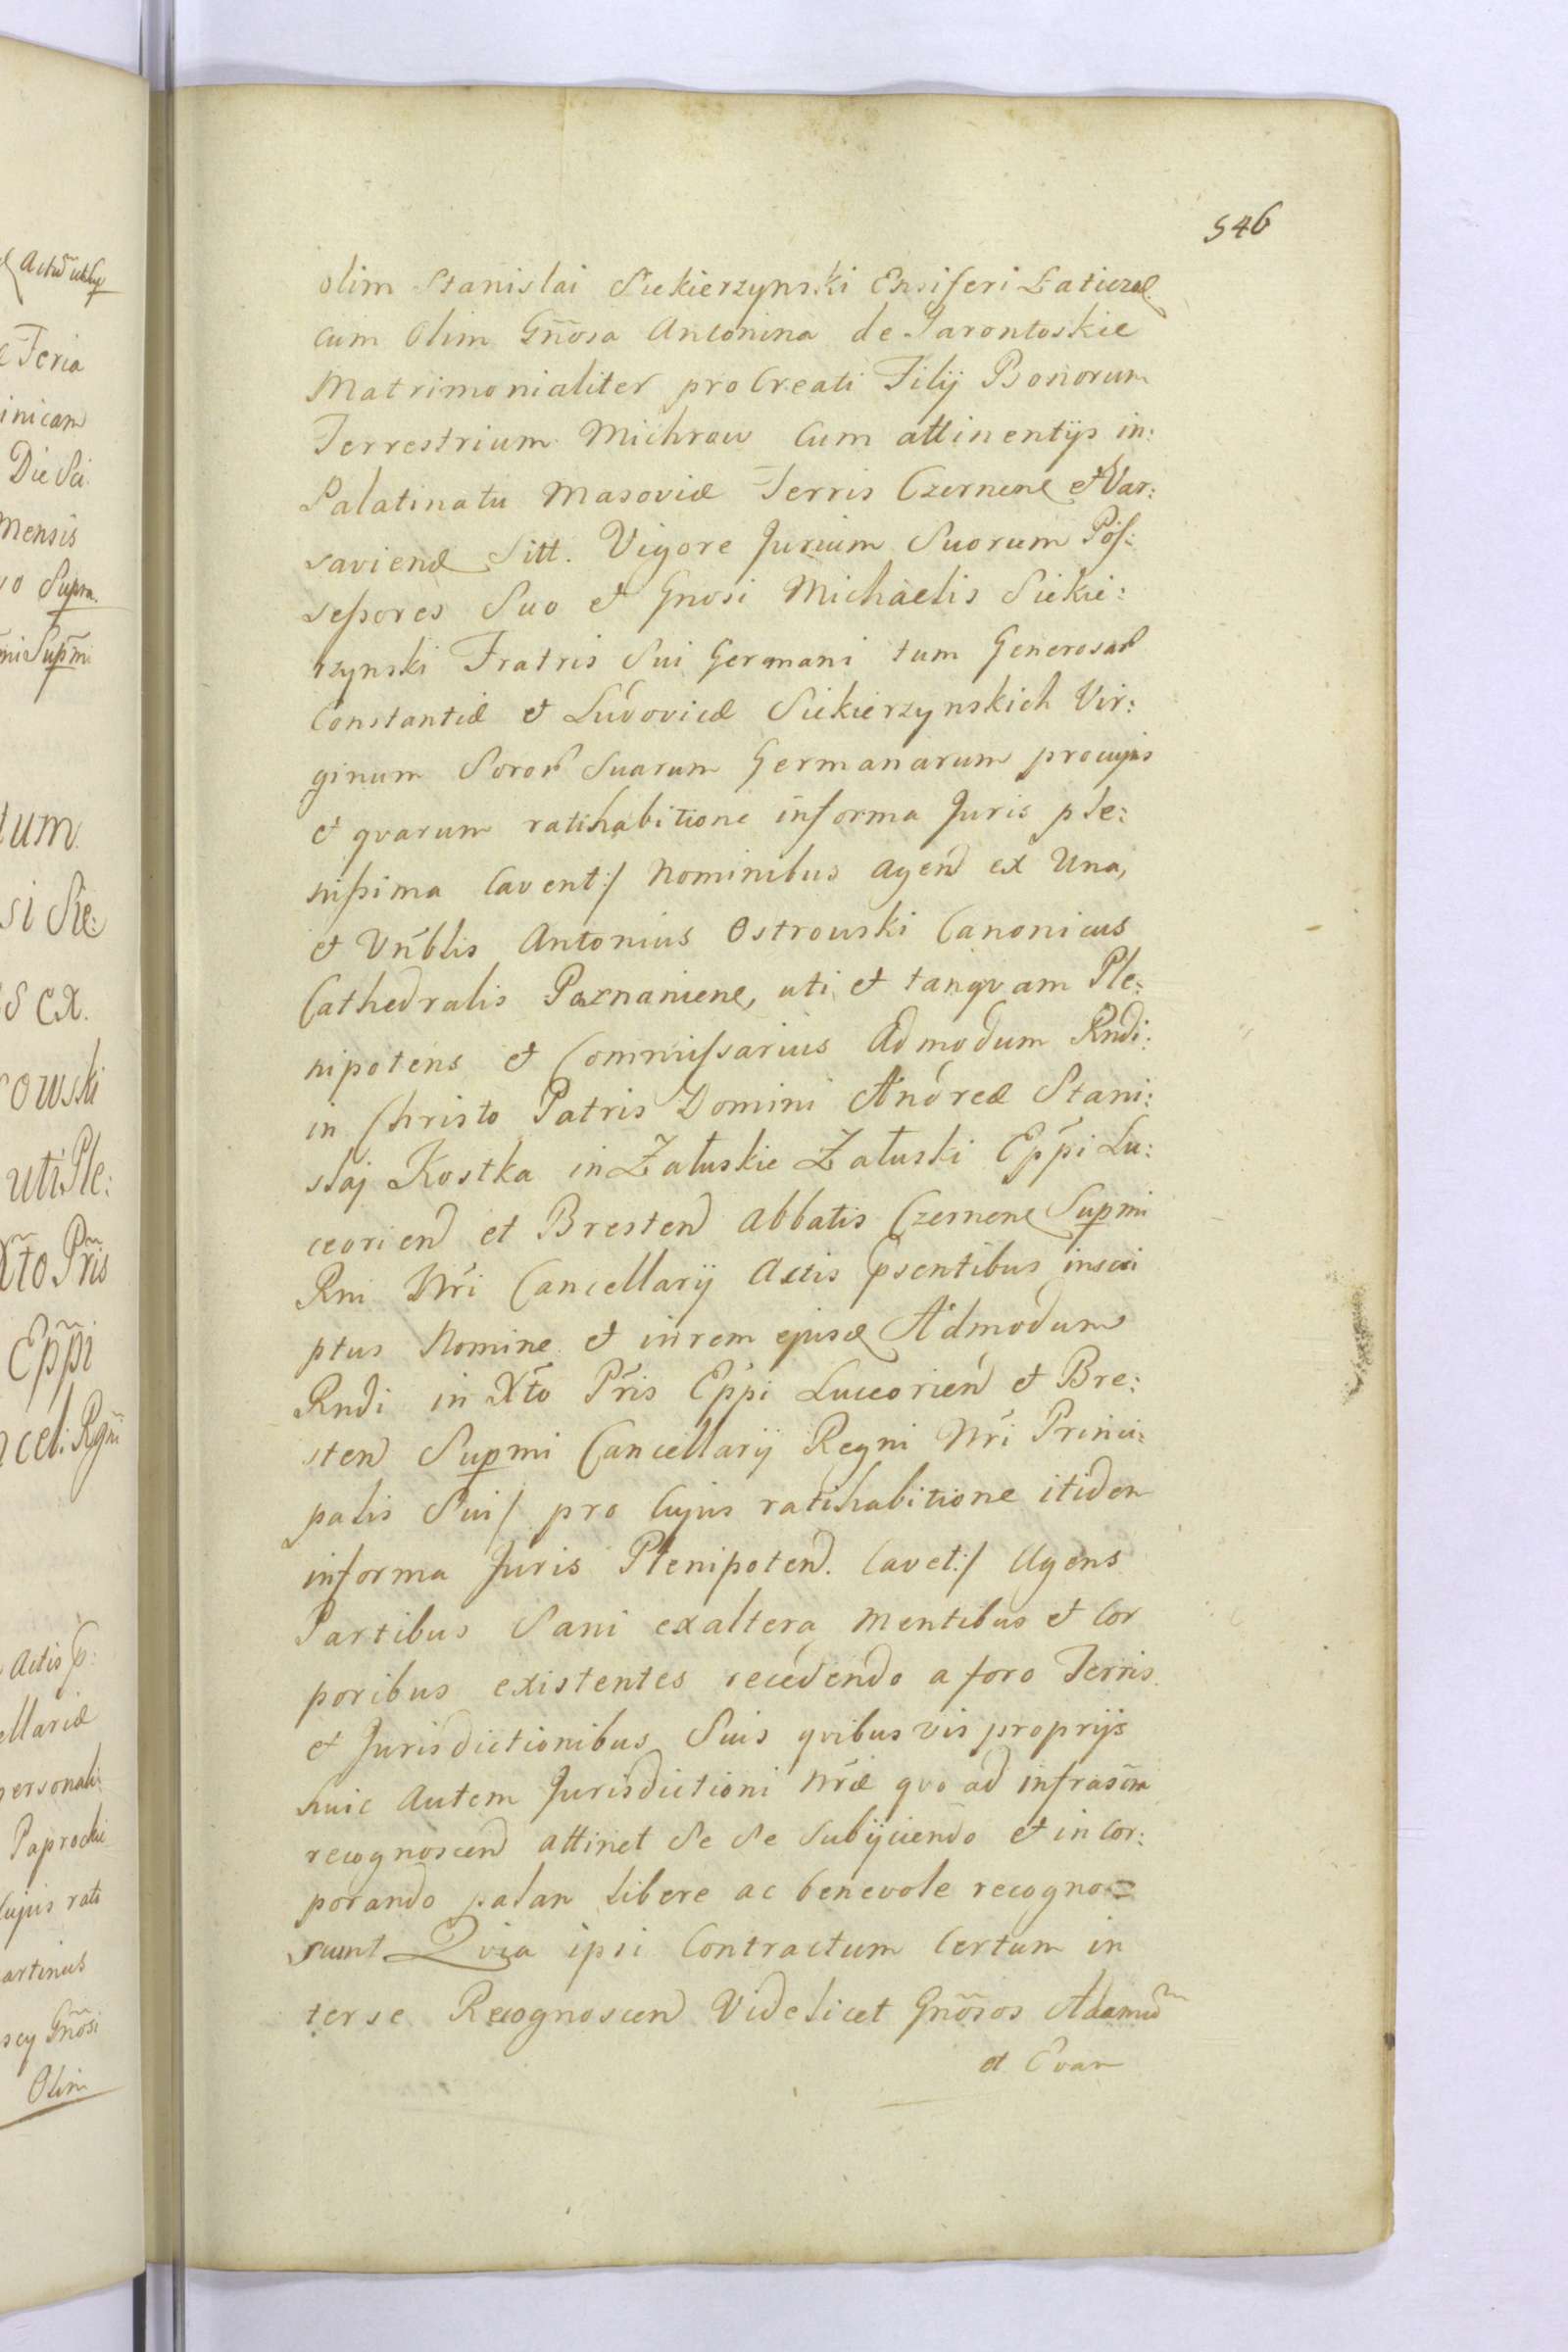 546
olim Stanislai Siekierzynski Ensiferi Laticzol
cum Olim Gñosa Antonina de Jarontoskie
Matrimonialiter proCreati Filij Bonorum
Terrestrium Michrow Cum attinentijs in:
Palatinatu Masoviæ Terris Czernene et Var:
saviend Sitt. Vigore Jurium Suorum Pos:
sessores Suo et Gnosi Michaelis Siekie:
rzynski Fratris Sui Germani tum Generosar
Constantiæ et Ludovicæ Siekierzynskich Vir:
ginum Soror Suarum Germanarum pro cujus
et qvarum ratihabitione in forma Juris ple:
nissima Cavent:/ Nominibus agend ex Una,
et Vnblis Antonius Ostrowski Canonicus
Cathedralis Paznaniene, uti et tanqvam Ple:
nipotens et Commissarius Admodum Rndi:
in Christo Patris Domini Andreæ Stani:
slaj Kostka in Załuskie Załuski Eppi Lu:
ceoriend et Brestend Abbatis Czernene Supmi
Rni Nri Cancellarij Actis psentibus inscri
ptus Nomine et in rem ejusd Admodum
Rndi in Xto Pris Eppi Luceoriend et Bre:
stend Supmi Cancellarij Regni Nri Princi:
palis Sui/ pro Cujus ratihabitione itidem
in forma Juris Plenipotend. Cavet:/ Agens
Partibus Sani ex altera Mentibus et Cor
poribus existentes recedendo a foro Terris
et Jurisdictionibus Suis qvibusvis proprijs
huic Autem Jurisdictioni Nræ qvo ad infrascra
recognoscend attinet Se Se Subijciendo et incor:
porando palan libere ac benevole recogno=
scunt Qvia ipsi Contractum Certum in
ter se Recognoscend Videlicet Gnosos Adamũ
et Evan